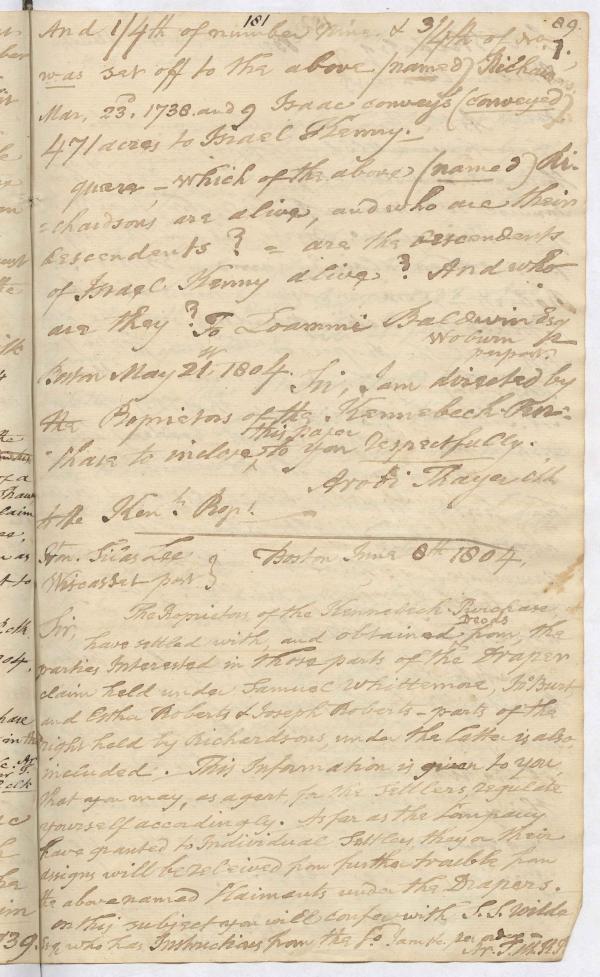 181
89.
And 1/4th of number Nine & 3/4th of No
1.
was set off to the above (named) Richard
Mar, 23d, 1738. and 9 Isaac conveys (conveyed)
471 acres to Israel Henny.
quere - which of the above (named) Ri-
=chardson's are alive, and who are their
descendents? = are the descendents
of Israel Henny alive? And who
are they? To Loammi Baldwin Esq
Woburn
pr post.
Boston May 21st, 1804. Sir, I am directed by
the Proprietors of the Kennebeck Pur-
this paper
"chase to inclose ^ to you respectfully.
Arodi Thayer Clk
to the Kenk Propt
Hon. Silas Lee } Boston June 8th 1804,
Wiscasset post }
The Proprietors of the Kennebeck Purchase,
Sir,
Deeds
have settled with, and obtained ^ from, the
parties Interested in those parts of the Draper
claim held under Samuel Whittemore, Jno Burt
and Esther Roberts & Joseph Roberts - parts of the
right held by Richardsons, under the latter is also
included. This Information is given to you,
that you may, as agent for the settlers, regulate
yourself accordingly. As far as the Company
have granted to Individual Settlers, they or their
assigns will be relieved from further trouble from
the above named Claimants under the Drapers.
on this subject you will confer with S. S. Wilde
Esq who has Instructions from the Co. I am &c. per order